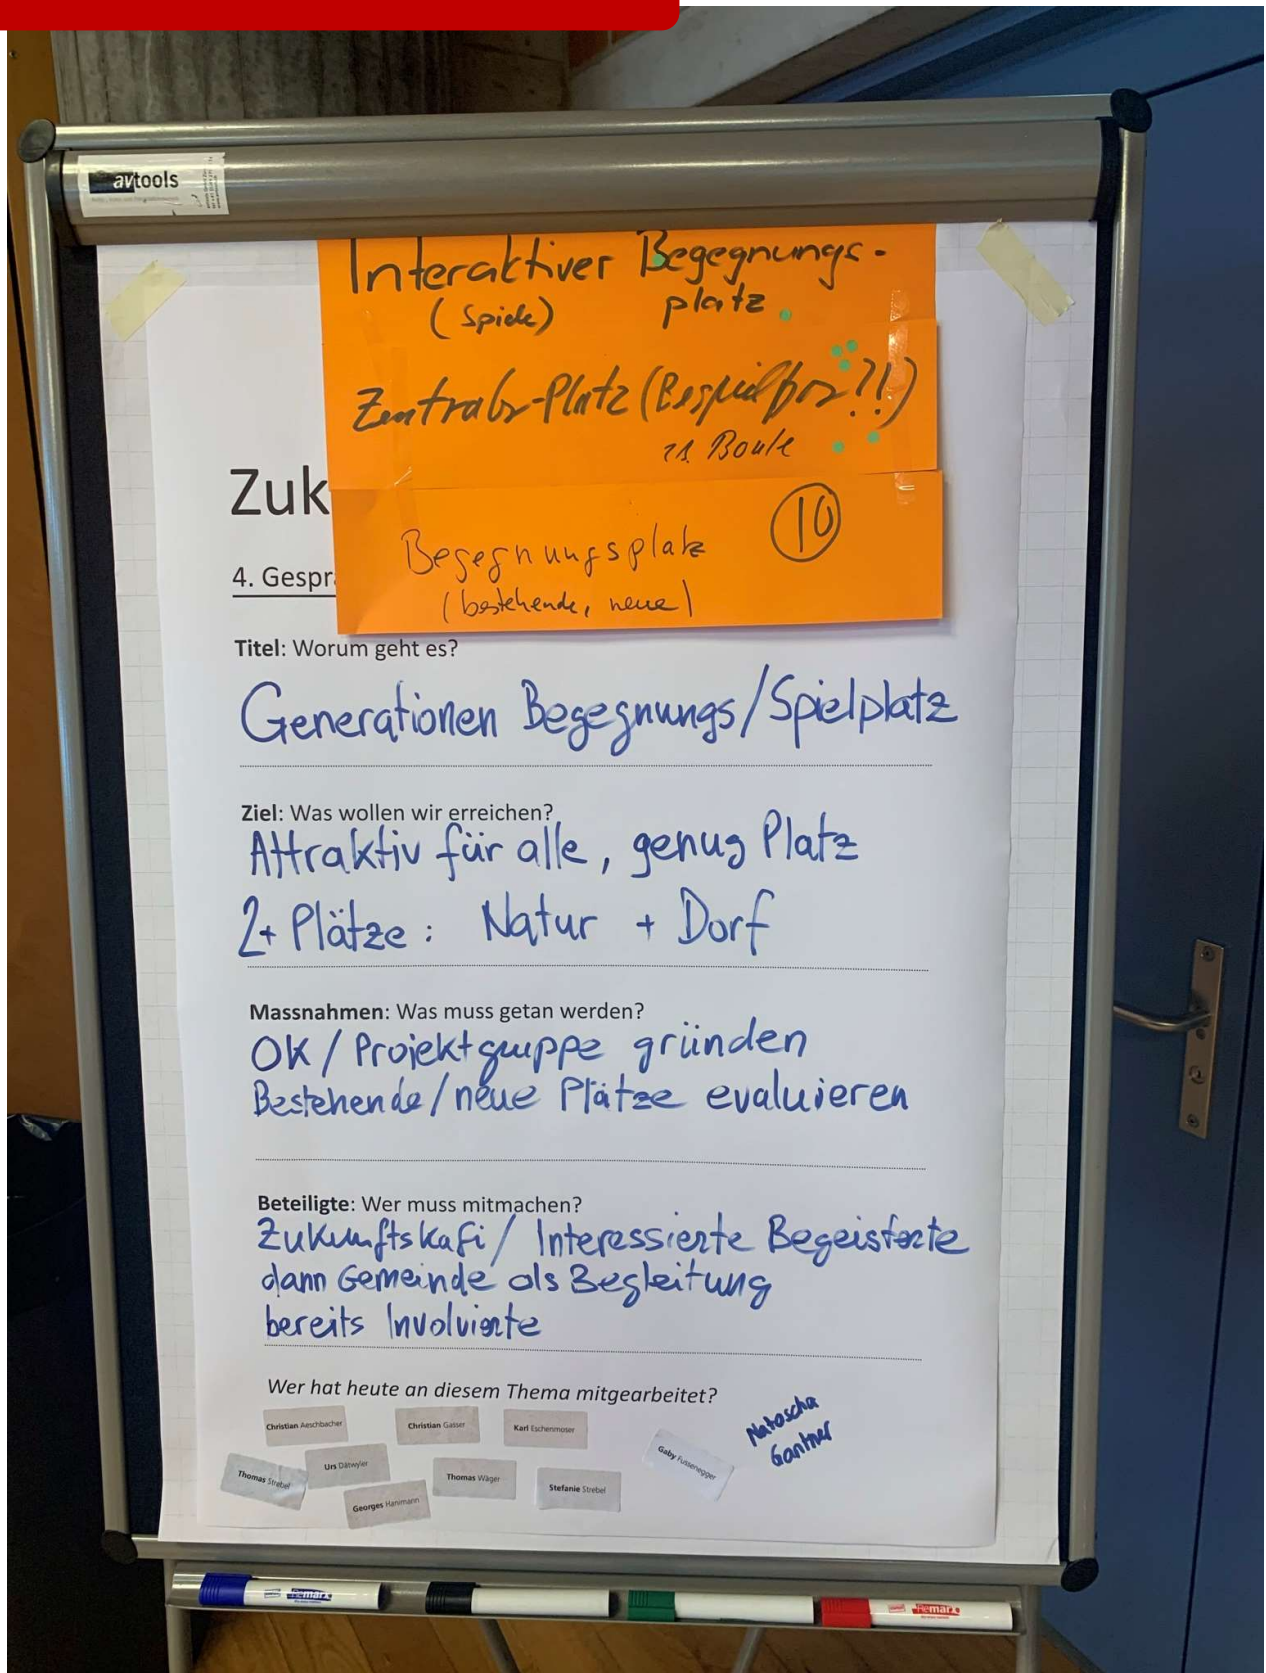 avtools
Interaktiver Begegnungs-
(Spiele) platz
Zentraler-Platz (Bespielbar?!)
z.B. Boule
Begegnungsplatz 10
(bestehende, neue)
Zuk
4. Gesprä
Titel: Worum geht es?
Generationen Begegnungs/Spielplatz
Ziel: Was wollen wir erreichen?
Attraktiv für alle, genug Platz
2+ Plätze: Natur + Dorf
Massnahmen: Was muss getan werden?
OK / Projektgruppe gründen
Bestehende/neue Plätze evaluieren
Beteiligte: Wer muss mitmachen?
Zukunftskafi / Interessierte Begeisterte
dann Gemeinde als Begleitung
bereits Involvierte
Wer hat heute an diesem Thema mitgearbeitet?
Christian Aeschbacher
Christian Gasser
Karl Eschenmoser
Natascha
Gantner
Gaby Fussenegger
Thomas Strebel
Urs Dätwyler
Thomas Wäger
Stefanie Strebel
Georges Hanimann
Remarx
Remarx